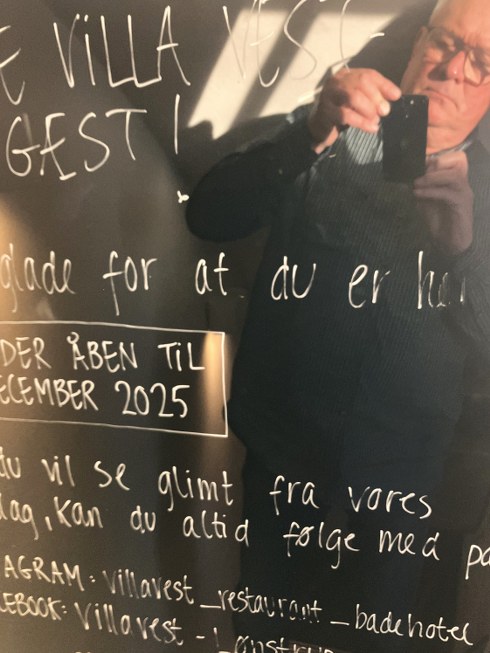 E VILLA VEST-
GÆST!
glade for at du er her
DER ÅBEN TIL
ECEMBER 2025
du vil se glimt fra vores
lag, kan du altid følge med på
AGRAM: villavest_restaurant_badehotel
CEBOOK: Villa vest -